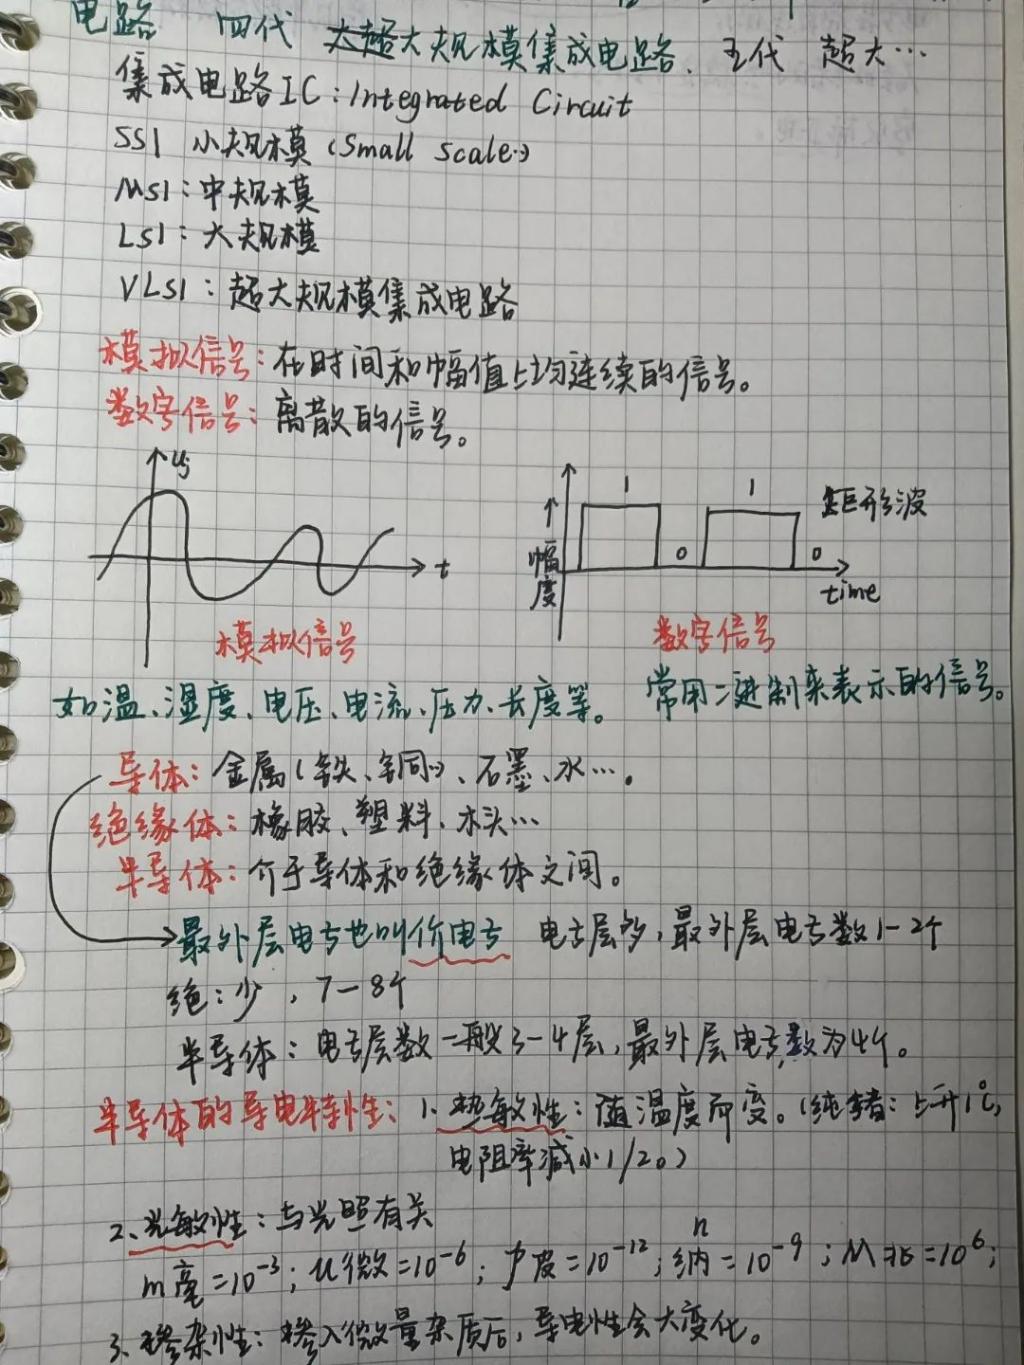 电路 四代 大规模集成电路、五代 超大…
集成电路IC:Integrated Circuit
SSI 小规模(Small scale…)
MSI:中规模
LSI:大规模
VLSI:超大规模集成电路
模拟信号:在时间和幅值上均连续的信号。
数字信号:离散的信号。
t
模拟信号
1 0 1 0 矩形波
幅度
time
数字信号
如温、湿度、电压、电流、压力、长度等。 常用二进制来表示的信号。
导体:金属(铁、铜…)、石墨、水…。
绝缘体:橡胶、塑料、木头…
半导体:介于导体和绝缘体之间。
最外层电子也叫价电子 电子层多,最外层电子数1-2个
绝:少,7-8个
半导体:电子层数一般3-4层,最外层电子数为4个。
半导体的导电特性:1、热敏性:随温度而变。(纯锗:上升1℃,
电阻率减小1/20)
2、光敏性:与光照有关
m毫=10⁻³;u微=10⁻⁶;p皮=10⁻¹²;n纳=10⁻⁹;M兆=10⁶;
3、掺杂性:掺入微量杂质后,导电性会大变化。